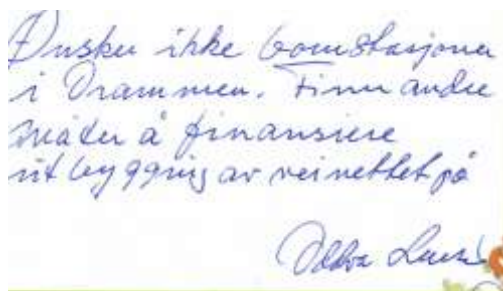 Ønsker ikke bomstasjoner
i Drammen. Finn andre
måter å finansiere
utbygging av veinettet på